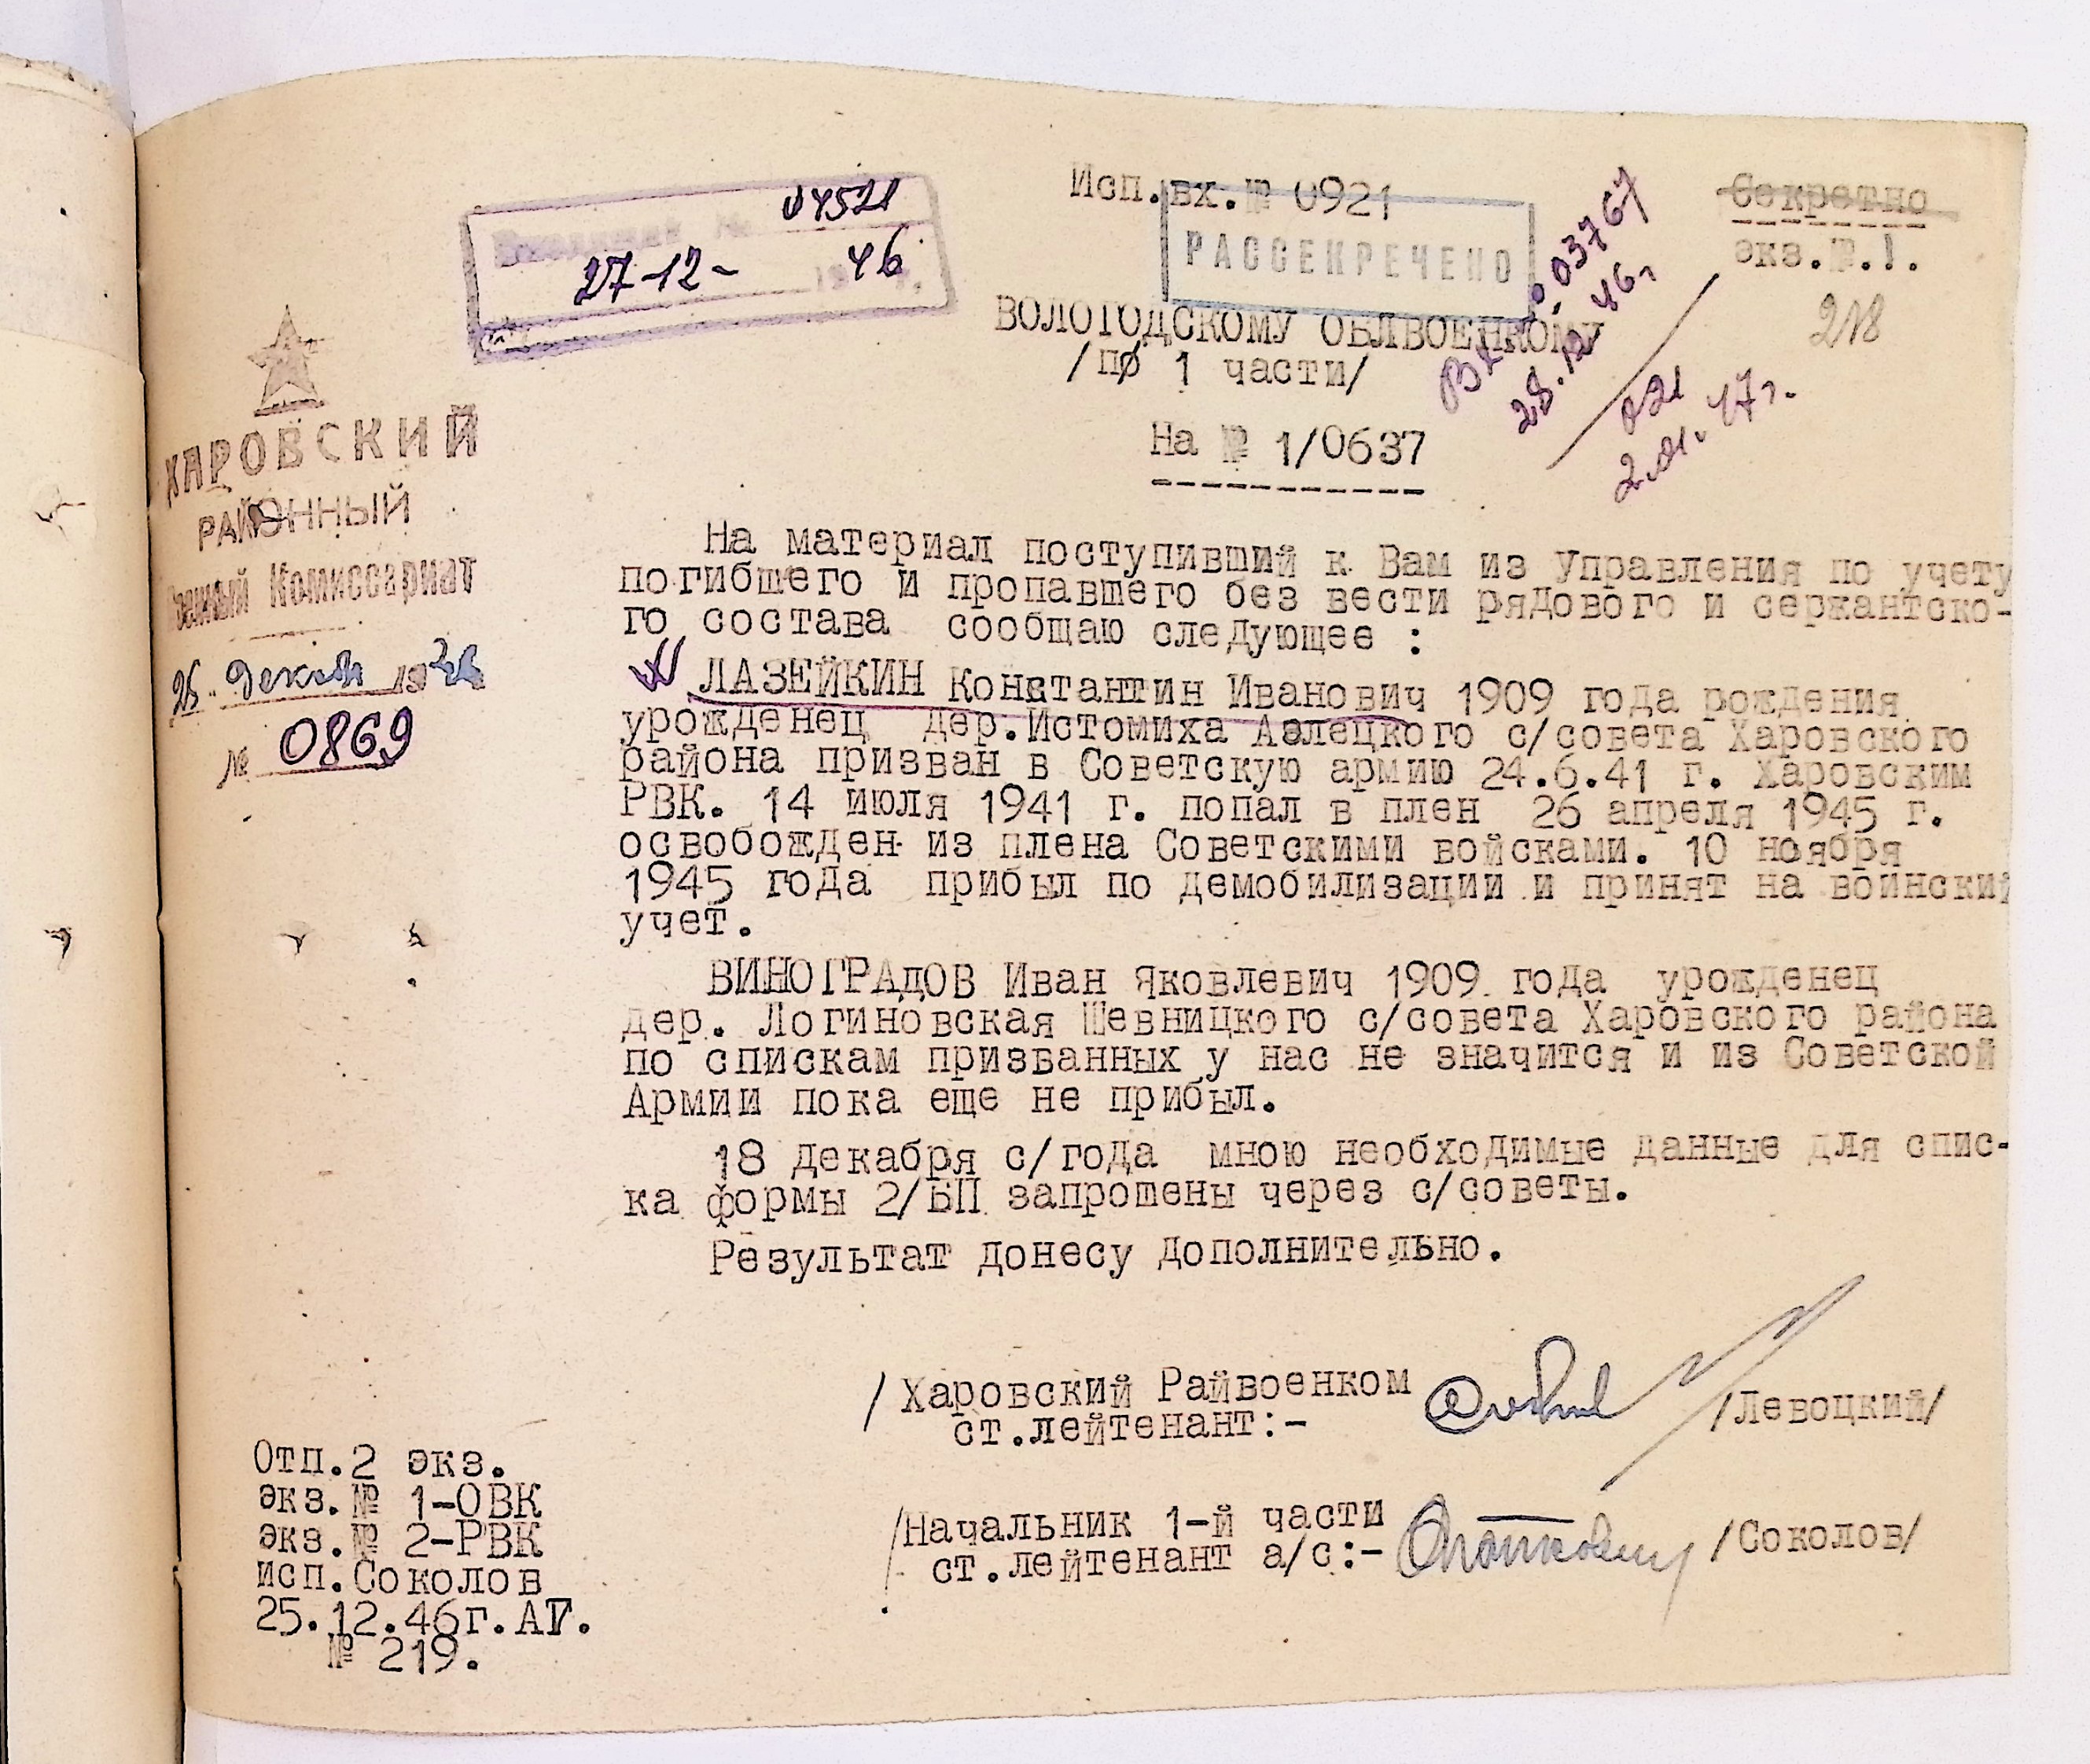 Исп.вх.№ 0921
Секретно
экз.№.1.
04521
27-12- 46
РАССЕКРЕЧЕНО
Вх. 03767
28.12.46г
021
2.01.47г.
218
ВОЛОГОДСКОМУ ОБЛВОЕНКОМУ
/по 1 части/
На № 1/0637
ХАРОВСКИЙ
РАЙОННЫЙ
Военный Комиссариат
25 декабя 1946
№ 0869
На материал поступивший к Вам из Управления по учету
погибшего и пропавшего без вести рядового и сержантско-
го состава сообщаю следующее :
ЛАЗЕЙКИН Константин Иванович 1909 года рождения
урожденец дер.Истомиха Азлецкого с/совета Харовского
района призван в Советскую армию 24.6.41 г. Харовским
РВК. 14 июля 1941 г. попал в плен 26 апреля 1945 г.
освобожден из плена Советскими войсками. 10 ноября
1945 года прибыл по демобилизации и принят на воинский
учет.
ВИНОГРАДОВ Иван Яковлевич 1909 года урожденец
дер. Логиновская Шевницкого с/совета Харовского района
по спискам призванных у нас не значится и из Советской
Армии пока еще не прибыл.
18 декабря с/года мною необходимые данные для спис-
ка формы 2/БП запрошены через с/советы.
Результат донесу дополнительно.
/Харовский Райвоенком
ст.лейтенант:- /Левоцкий/
/Начальник 1-й части
ст.лейтенант а/с:- /Соколов/
Отп.2 экз.
экз.№ 1-ОВК
экз.№ 2-РВК
исп.Соколов
25.12.46г.АГ.
№ 219.